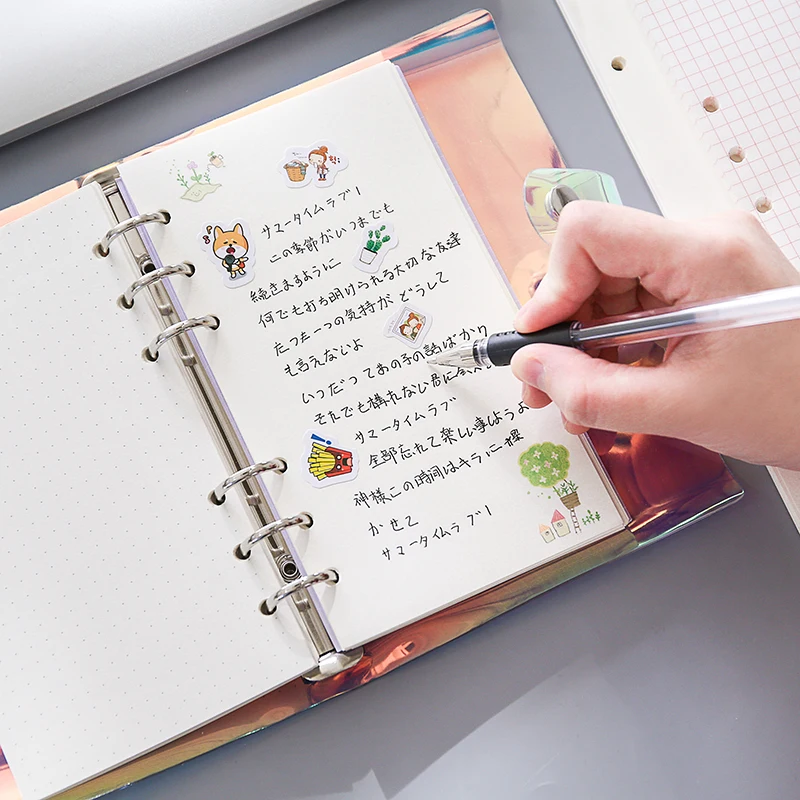 サマータイムラブ!
この季節がいつまでも
続きますように
何でも打ち明けられる大切な友達
たった一つの気持が どうして
も言えないよ
いつだって あの子の話ばかり
それでも構れない君に会
サマータイムラブ
全部忘れて楽しい事しようよ
神様この時間はキラに一擢
かせて
サマータイムラブ!